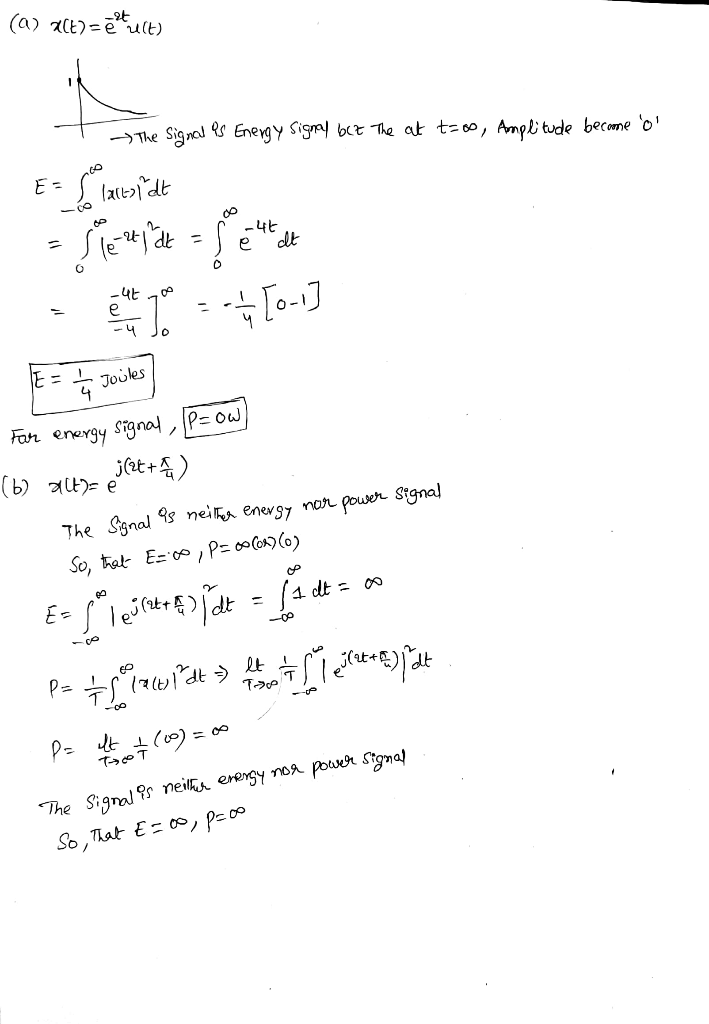 (a) x(t) = e^{-2t} u(t)
1
→ The Signal is Energy Signal bcz The at t=∞, Amplitude become '0'
E = ∫_{-∞}^{∞} |x(t)|² dt
= ∫_{0}^{∞} |e^{-2t}|² dt = ∫_{0}^{∞} e^{-4t} dt
= e^{-4t}/-4 ]_{0}^{∞} = -1/4 [0-1]
E = 1/4 Joules
For energy signal, P = 0W
(b) x(t) = e^{j(2t+π/4)}
The Signal is neither energy nor power Signal
So, that E=∞, P=∞(or)(0)
E = ∫_{-∞}^{∞} |e^{j(2t+π/4)}|² dt = ∫_{-∞}^{∞} 1 dt = ∞
P = 1/T ∫_{-∞}^{∞} |x(t)|² dt ⇒ lt_{T→∞} 1/T ∫_{-∞}^{∞} |e^{j(2t+π/4)}|² dt
P = lt_{T→∞} 1/T (∞) = ∞
The Signal is neither energy nor power signal
So, That E = ∞, P=∞